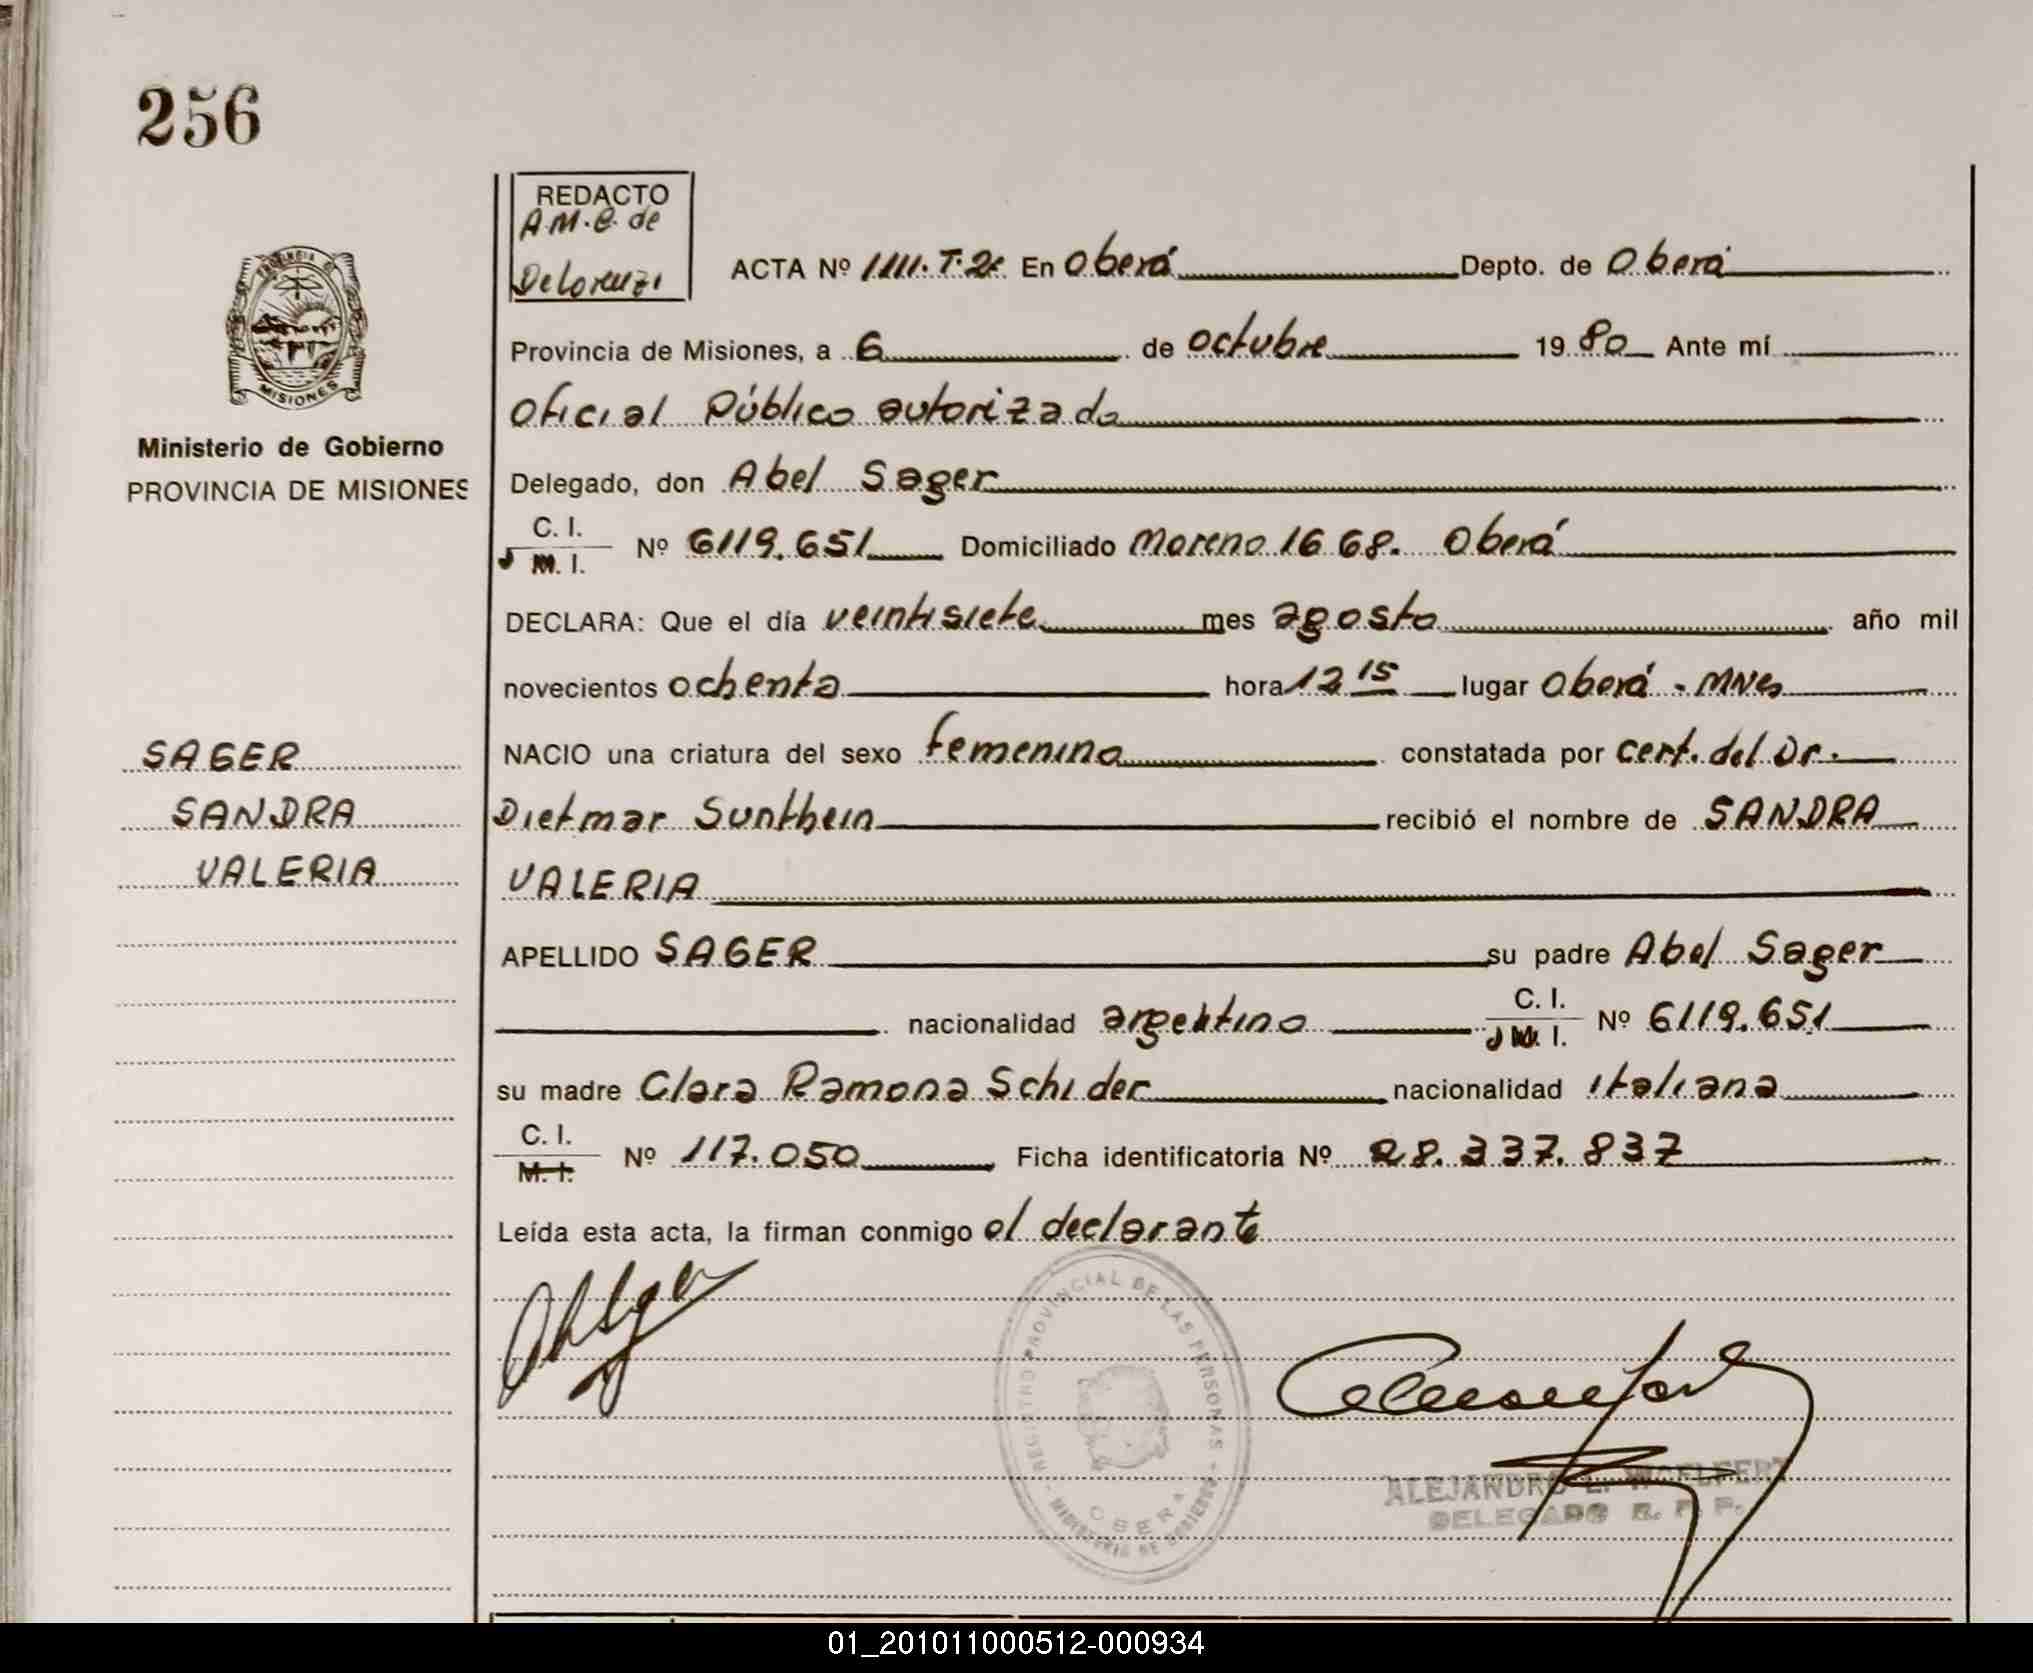 256
REDACTO
A.M.C. de
Delorenzi
ACTA Nº 1111. T. 2º. En Oberá Depto. de Oberá
Provincia de Misiones, a 6 de octubre 19 80 Ante mí
Oficial Público autorizado
PROVINCIA DE
MISIONES
Ministerio de Gobierno
PROVINCIA DE MISIONES
Delegado, don Abel Sager
C. I.
M. I. Nº 6119.651 Domiciliado Moreno 1668. Oberá
DECLARA: Que el día veintisiete mes agosto año mil
novecientos ochenta hora 12 15 lugar Oberá - Mnes
SAGER
SANDRA
VALERIA
NACIO una criatura del sexo femenino constatada por cert. del Dr.
Dietmar Sunthein recibió el nombre de SANDRA
VALERIA
APELLIDO SAGER su padre Abel Sager
nacionalidad argentino C. I.
M. I. Nº 6119.651
su madre Clara Ramona Schider nacionalidad italiana
C. I.
M. I. Nº 117.050 Ficha identificatoria Nº 28.337.837
Leída esta acta, la firman conmigo el declarante
REGISTRO PROVINCIAL DE LAS PERSONAS - MINISTERIO DE GOBIERNO -
OBERA
ALEJANDRO L. WOELFERT
DELEGADO R. P. P.
01_201011000512-000934